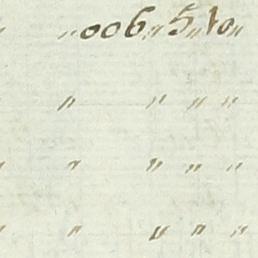 " " 006 " 5 " 10 "
" " " " "
" " " " "
" " " " "